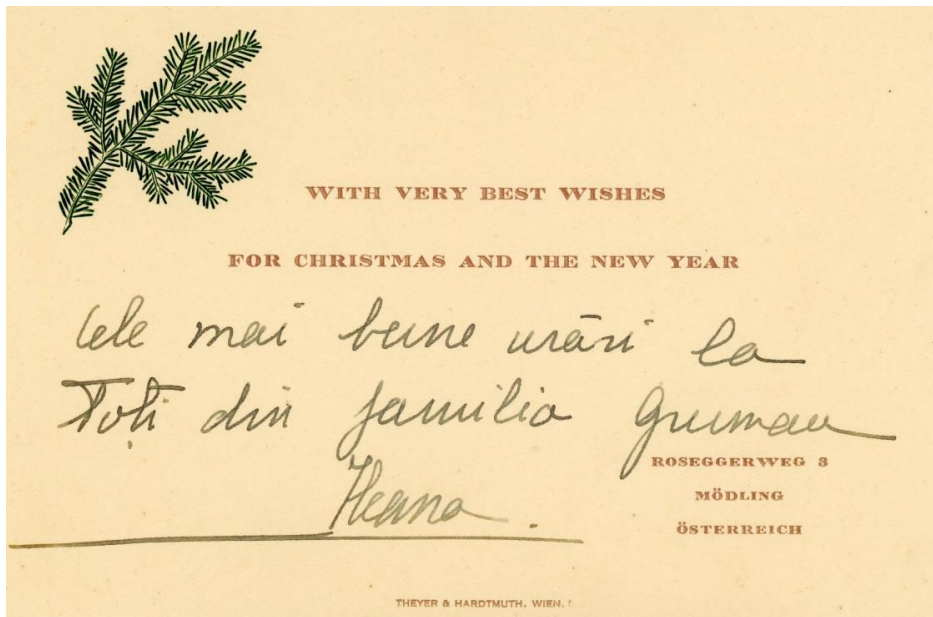 WITH VERY BEST WISHES
FOR CHRISTMAS AND THE NEW YEAR
Cele mai bune urări la
Toți din familia
Ileana.
ROSEGGERWEG 3
MÖDLING
ÖSTERREICH
THEYER & HARDTMUTH, WIEN, I